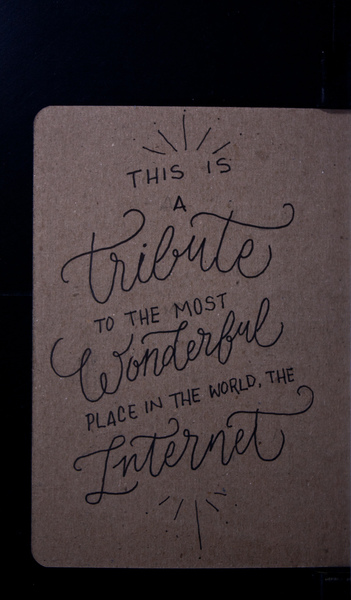 THIS IS
A
tribute
TO THE MOST
Wonderful
PLACE IN THE WORLD, THE
Internet